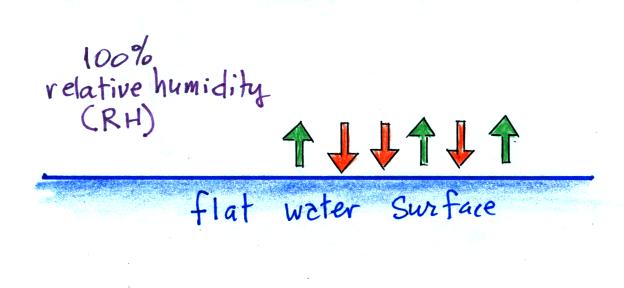 100%
relative humidity
(RH)
flat water surface